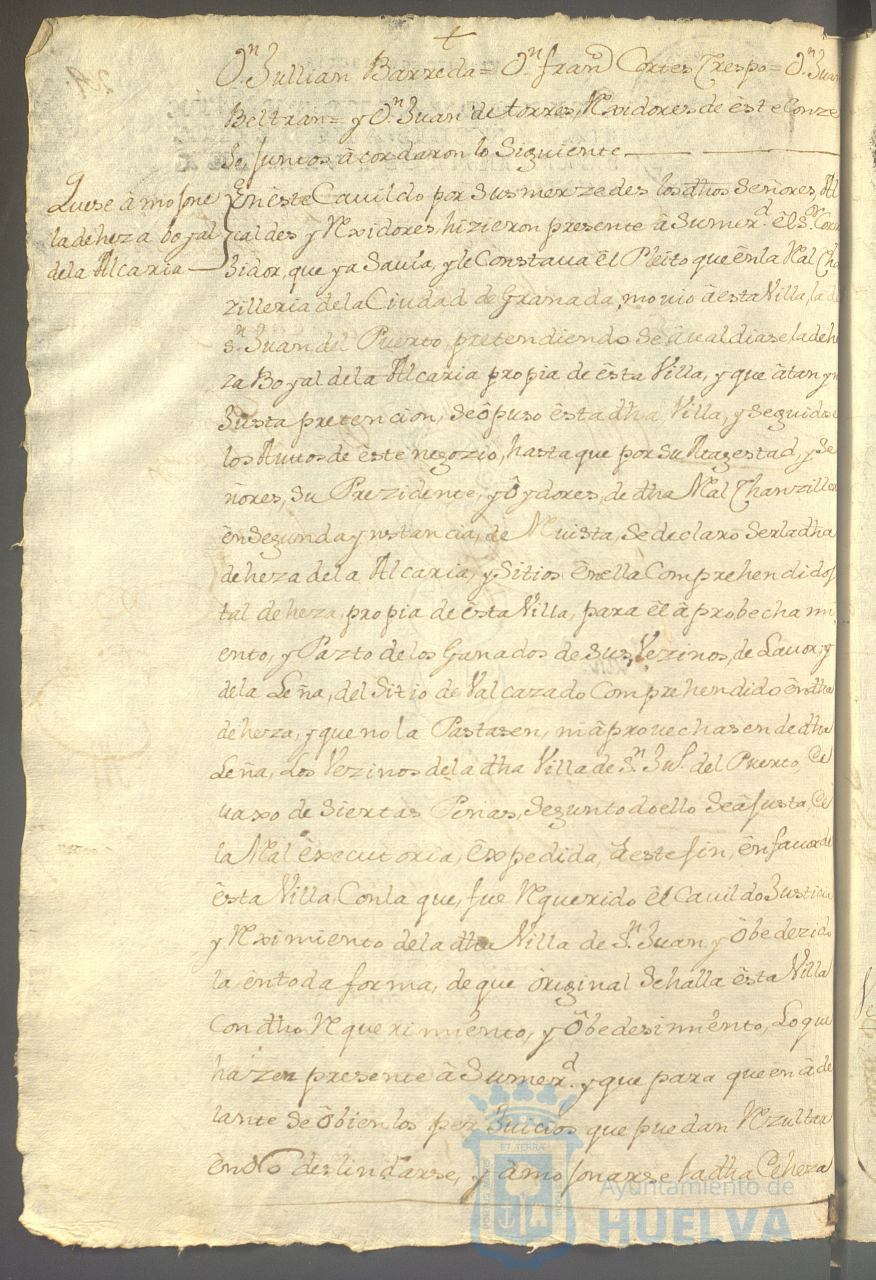 †
Dn. Jullian Barreda = Dn. franco Cortes Crespo = Dn. Juan
Beltran = y Dn. Juan de torres, Rexidores de este Conze
Jo Juntos âcordaron lo Siguiente
Quese âmojone
la deheza boyal
dela Alcaria
En este Cavildo por Susmerzedes los dhos Señores, Al
caldes y Rexidores, hizieron presente â Sumerd. el Sor. Corre
Jidor, que ya Savia, yle Constava êl Pleito que ênla Real Cha
zilleria dela Ciudad de Granada, movio âesta Villa, la de
Sn. Juan del Puerto, pretendiendo Se âvaldiase la dehe
za Boyal dela Alcaria propia de êsta Villa, y que âtan yn
Justa pretencion, Se ôpuso êsta dha Villa, y Seguidose
los Autos de êste negozio, hasta que por Su Magestad, y Se
ñores, Su Prezidente, y Oydores, de dha Real Chanziller
ên Segunda ynstancia, de Revista, Se declaro Ser la dha
deheza dela Alcaria, y Sitios ên ella Comprehendidos
tal deheza, propia de êsta Villa, para êl âprobecham
ento, y Pazto delos Ganados de Sus Vezinos, de Lavor, y
dela Leña, del Sitio de Valcazado Comprehendido ên dha
deheza, y que no la Pastasen, ni âprovechasen de dha
Leña, Los Vezinos dela dha Villa de Sn. Jun. del Puerto, de
vaxo de Siertas Penas, Segun todo ello Se âJusta, de
la Real êxecutoria, êxpedida, â este fin, ên favor de
êsta Villa, Con la que, fue Requerido êl Cavildo Justicia
y Reximiento dela dha Villa de Sn. Juan y Obedezido
la ên toda forma, de que ôriginal Se halla êsta Villa
Con dho Requerimiento, y Obedesimiento, Lo que
hazen presente â Sumerd. y que para que ên âde
lante Se ôbien los perJuicios que puedan Rezultar
ên No deslindarse, y âmojonarse la dha Deheza
ET TERRÆ
Ayuntamiento de
HUELVA